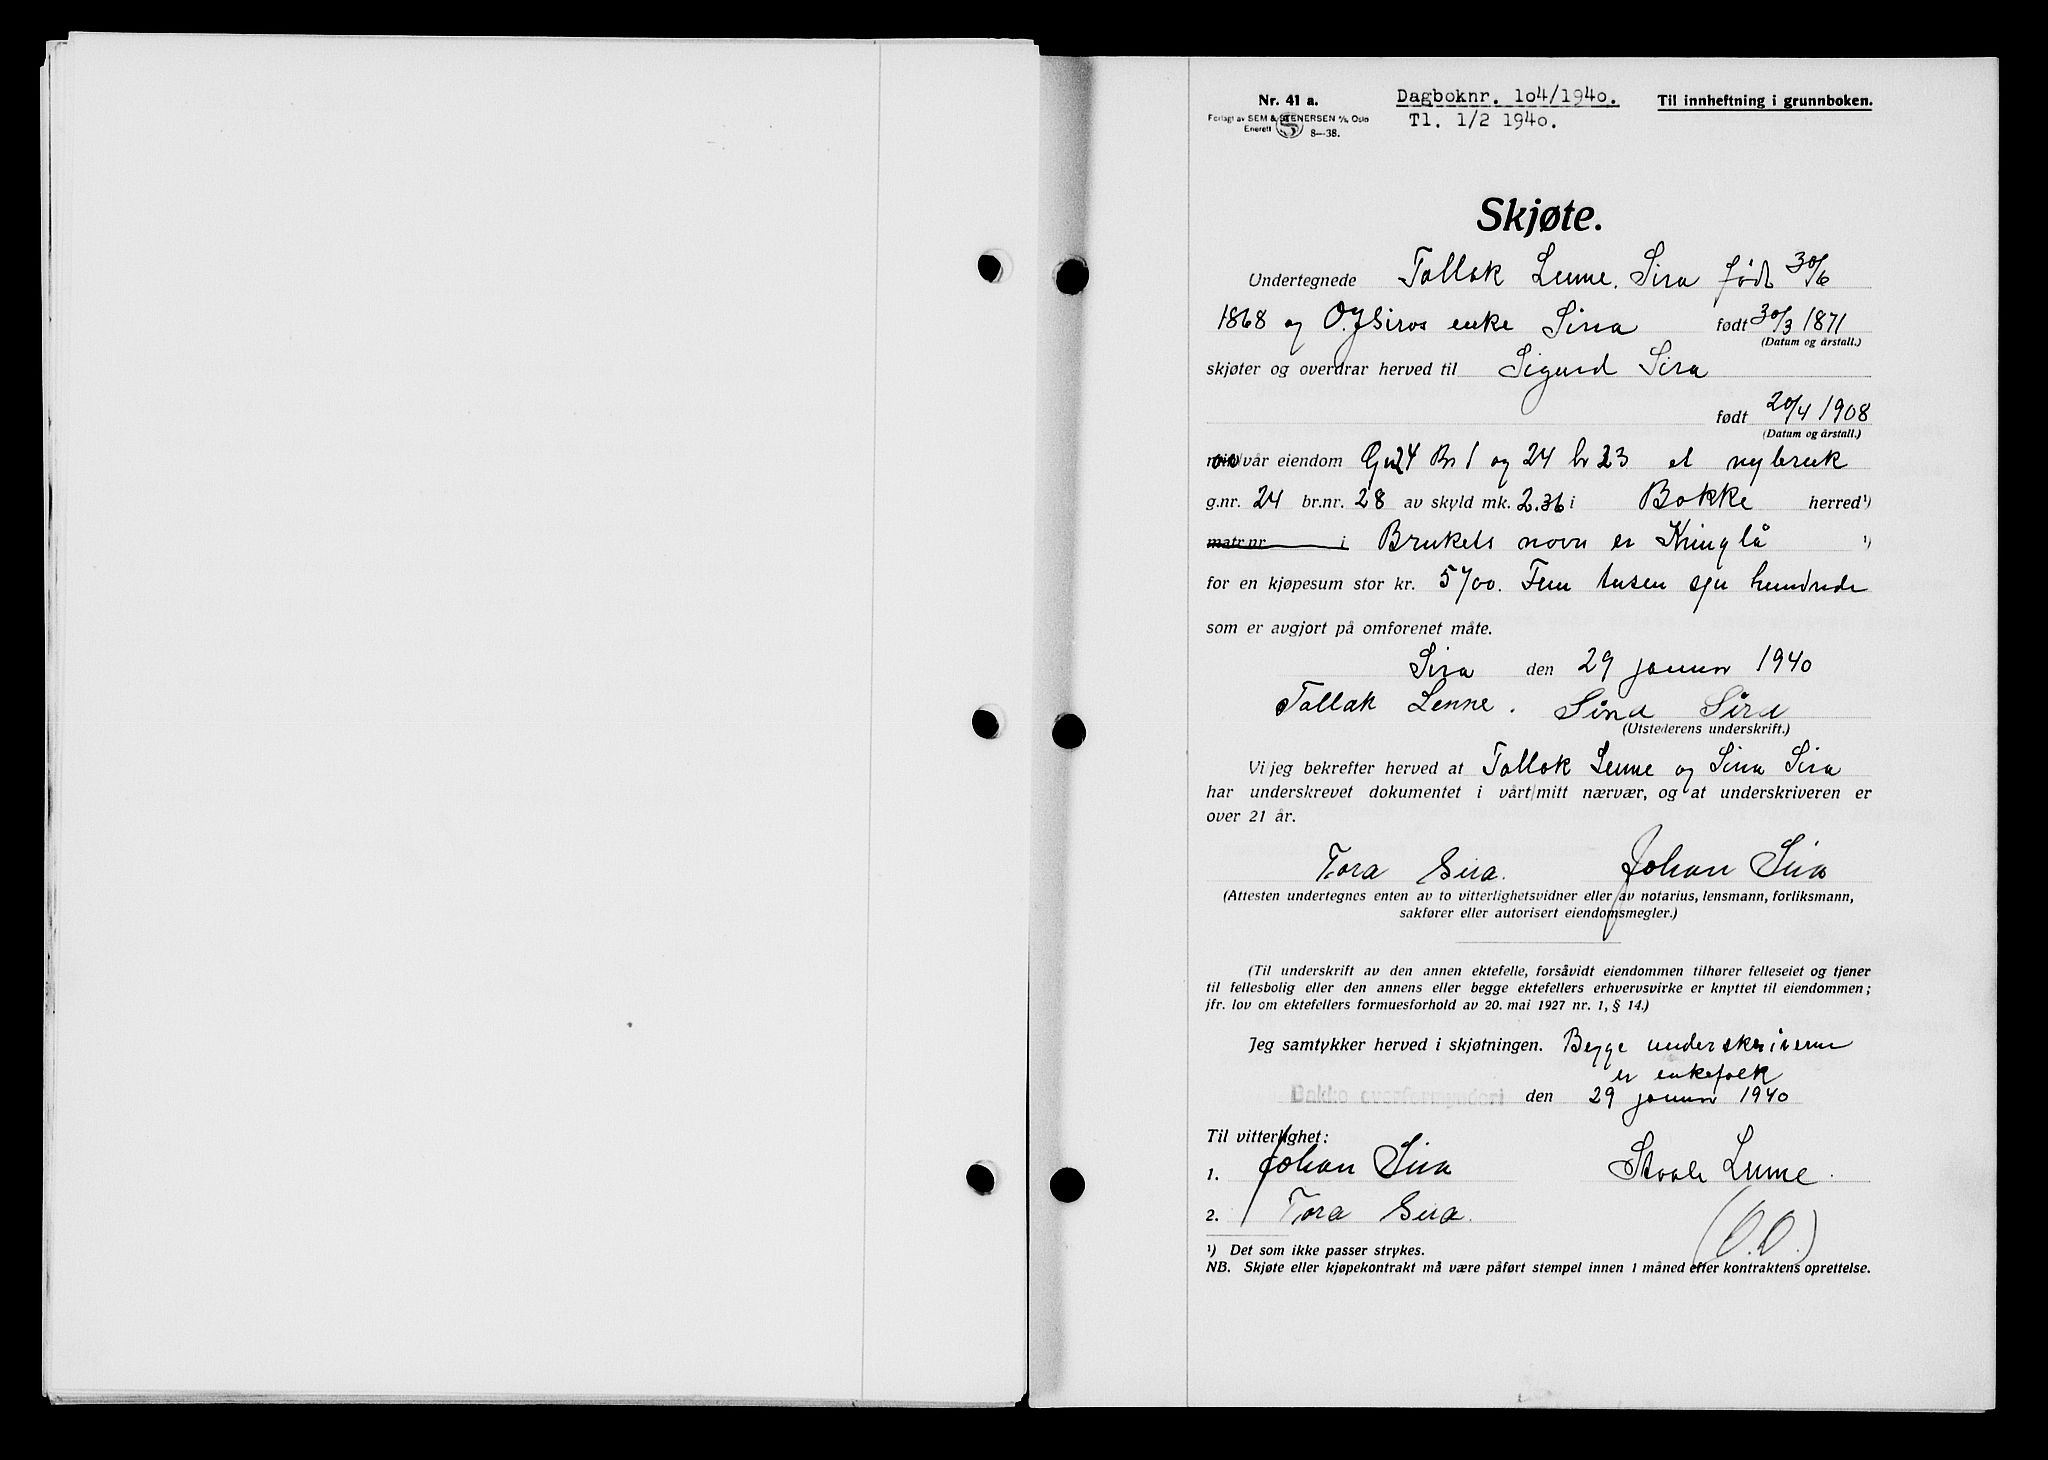 Nr. 41 a.
Dagboknr. 104/1940.
Til innheftning i grunnboken.
Forlagt av SEM & STENERSEN A/S, Oslo
Enerett S 8—38.
Tl. 1/2 1940.
Skjøte.
Undertegnede Tallak Lenne, Sira født 30/6
1868 og O.J. Siras enke Sina født 30/3 1871
(Datum og årstall.)
skjøter og overdrar herved til Sigurd Sira
født 20/4 1908
(Datum og årstall.)
vår eiendom Gn 24 Bn 1 og 24 br 23 et nybruk
g.nr. 24 br.nr. 28 av skyld mk. 2.36 i Bakke herred ¹)
matr.nr. i Brukets navn er Kringlå ¹)
for en kjøpesum stor kr. 5700. Fem tusen sju hundrede
som er avgjort på omforenet måte.
Sira den 29 januar 1940
Tallak Lenne. Sina Sira
(Utstederens underskrift.)
Vi/jeg bekrefter herved at Tallak Lenne og Sina Sira
har underskrevet dokumentet i vårt/mitt nærvær, og at underskriveren er
over 21 år.
Tora Sira. Johan Sira
(Attesten undertegnes enten av to vitterlighetsvidner eller av notarius, lensmann, forliksmann,
sakfører eller autorisert eiendomsmegler.)
(Til underskrift av den annen ektefelle, forsåvidt eiendommen tilhører felleseiet og tjener
til fellesbolig eller den annens eller begge ektefellers erhvervsvirke er knyttet til eiendommen;
jfr. lov om ektefellers formuesforhold av 20. mai 1927 nr. 1, § 14.)
Jeg samtykker herved i skjøtningen. Begge underskriverne
er enkefolk
Bakke overformynderi den 29 januar 1940
Til vitterlighet:
1. Johan Sira Staale Lenne.
2. Tora Sira.
(O.O.)
¹) Det som ikke passer strykes.
NB. Skjøte eller kjøpekontrakt må være påført stempel innen 1 måned efter kontraktens oprettelse.